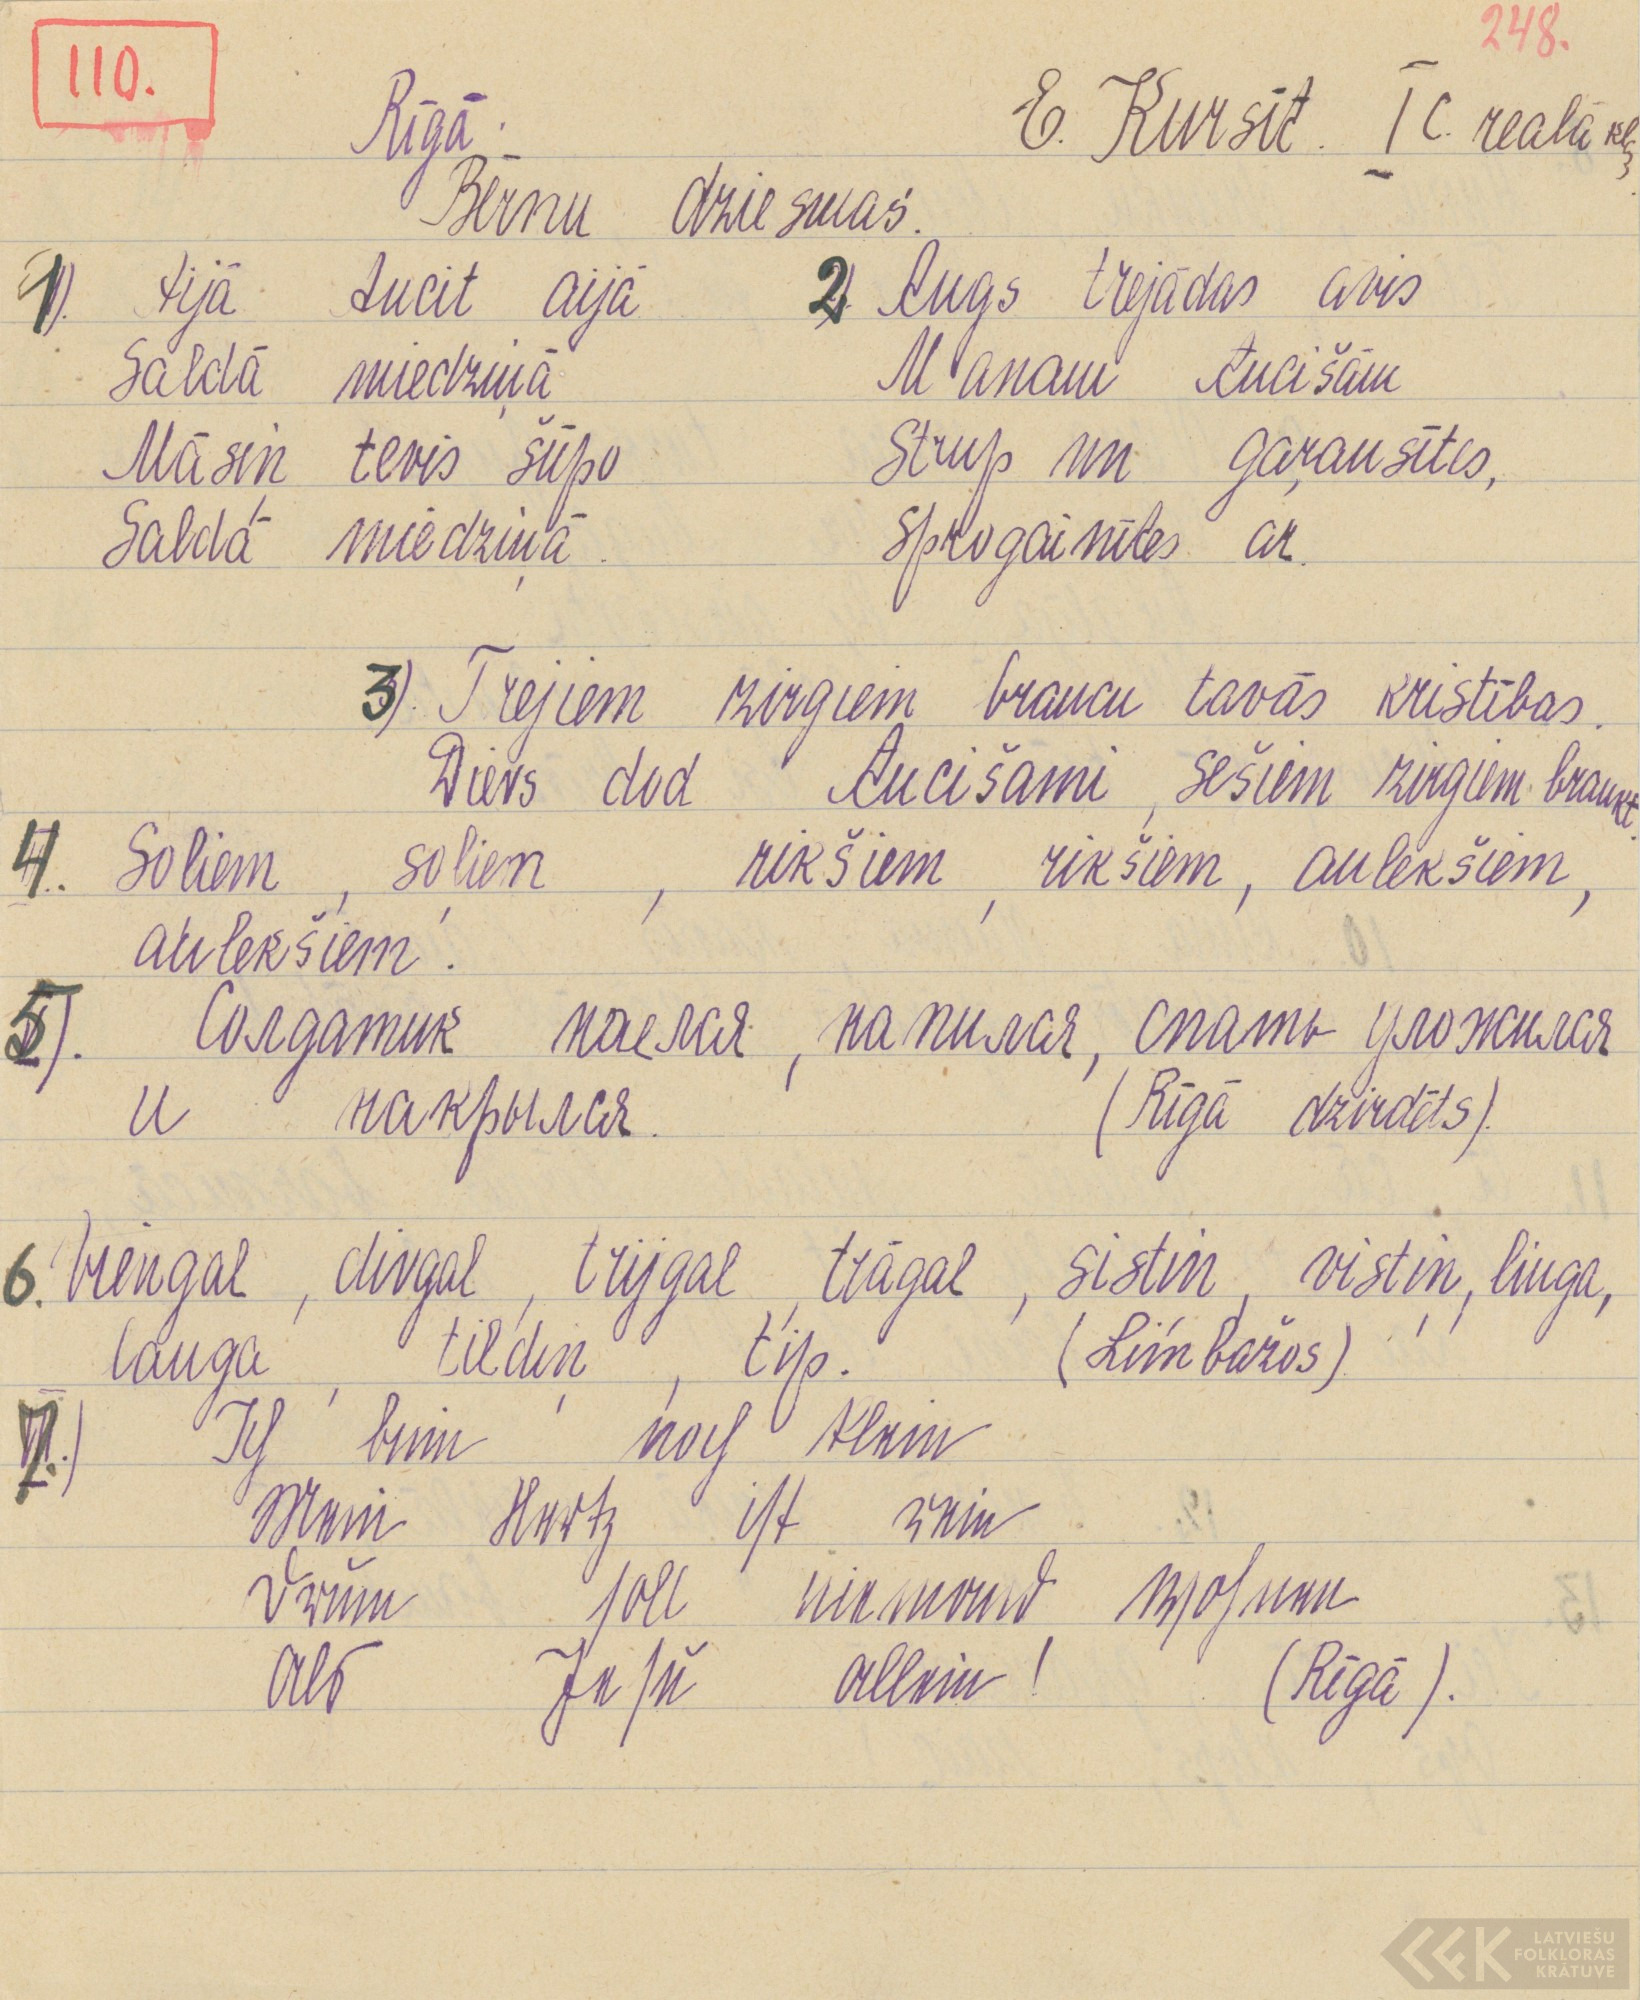 248.
110.
Rīgā.
E. Kursīt. I c. reālā kl.
Bērnu dziesmas.
1). Aijā Aucit aijā
Saldā miedziņā
Māsiņ tevis šūpo
Saldā miedziņā.
2). Augs trejādas avis
Manam Aucišām
Strup un gaŗausītes,
Sprogainītes ar.
3). Trejiem zirgiem braucu tavās kristības.
Dievs dod Aucišami, sešiem zirgiem braukt.
4. Soļiem, soļiem, rikšiem, rikšiem, aulekšiem,
aulekšiem.
5). Солдатик наелся, напился, спать уложился
и накрылся. (Rīgā dzirdēts).
6. Viengal, divgal, trijgal, trāgal, sistiņ, vistiņ, liuga,
lauga, tildiņ, tip. (Limbažos)
7.) Ich binn noch klein
Mein Hertz ist rein
Drum soll niemand wohnen
Als Jesu allein! (Rīgā).
LATVIEŠU
FOLKLORAS
KRĀTUVE